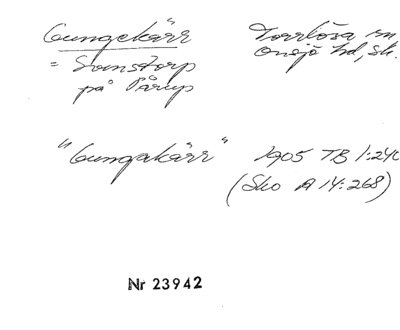 Gungekärr Torrlösa sn
= Svenstorp Onsjö hd, Sk.
på Pårup
"Gungakärr" 1905 TB 1:240
(Sko A 14:268)
Nr 23942